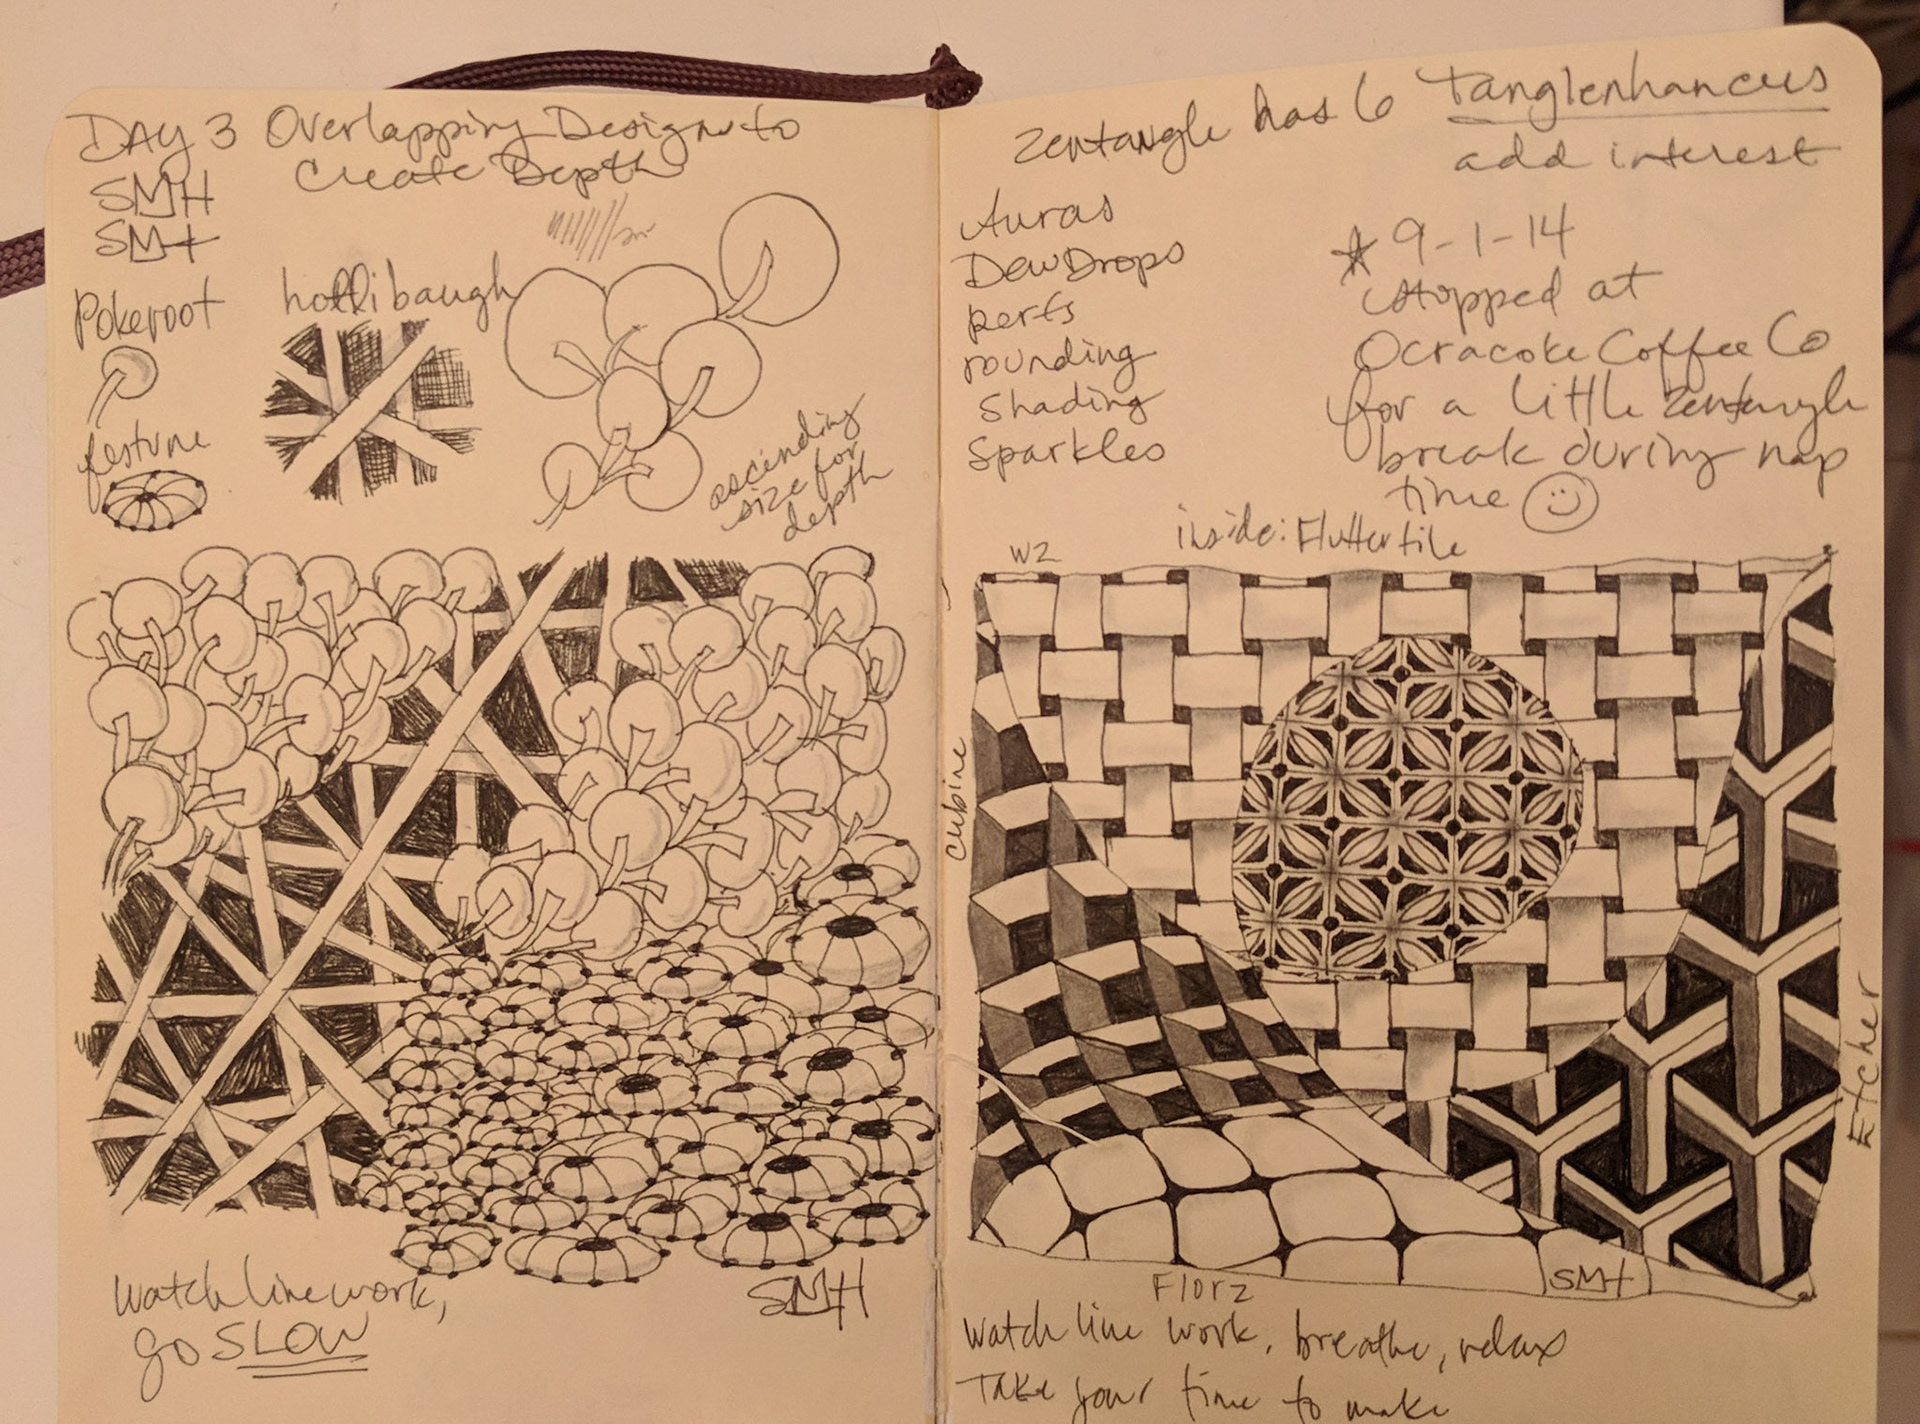 DAY 3 Overlapping Designs to
Create Depth
SMH
SMH
Pokeroot
hollibaugh
festune
ascending
size for
depth
Watch line work,
go SLOW
SMH
Zentangle has 6 Tanglenhancers
add interest
Auras
DewDrops
perfs
rounding
Shading
Sparkles
* 9-1-14
stopped at
Ocracoke Coffee Co
for a little Zentangle
break during nap
time
inside: Flutter tile
W2
cubine
Etcher
Florz
SMH
Watch line work, breathe, relax
Take your time to make